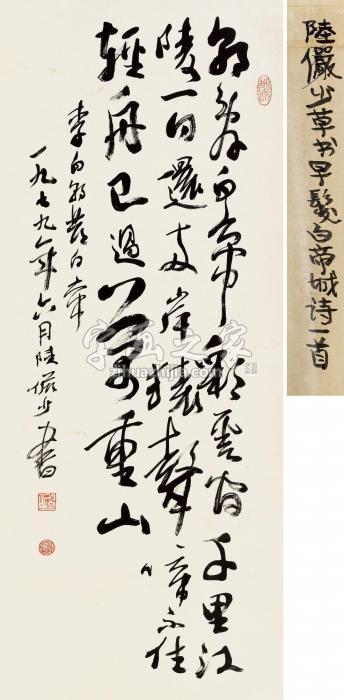 陸儼少草书早發白帝城诗一首
朝辞白帝彩雲间千里江
陵一日還两岸猿聲啼不住
輕舟已過萬重山
李白朝發白帝
一九七九年六月陸儼少書
字画之家
zihuazhijia.com